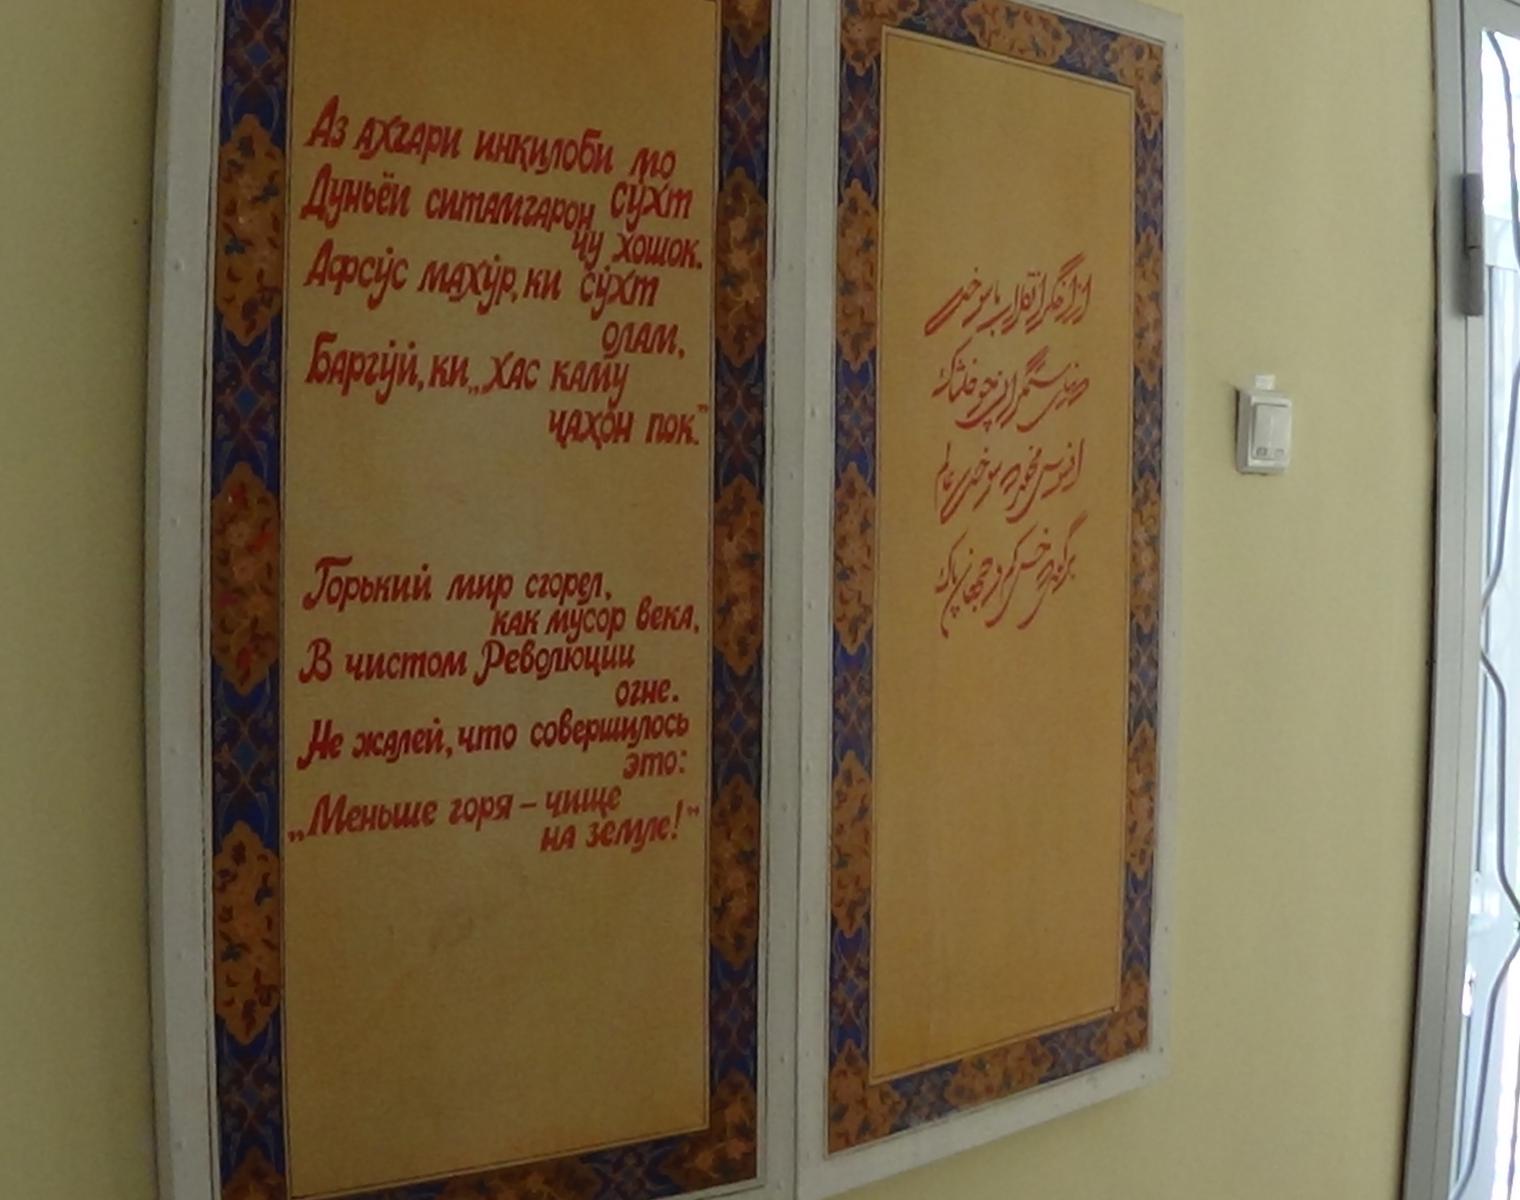 Аз ахгари инқилоби мо
сӯхт
Дуньёи ситамгарон
чу хошок.
Афсӯс махӯр, ки сӯхт
олам,
Баргӯй, ки „хас каму
ҷаҳон пок.”
Горький мир сгорел,
как мусор века,
В чистом Революции
огне.
Не жалей, что совершилось
это:
„Меньше горя – чище
на земле!”
از اخگر انقلاب ما سوخت
دنیای ستمگران چو خاشاک
افسوس مخور که سوخت عالم
برگوی که خس کم و جهان پاک